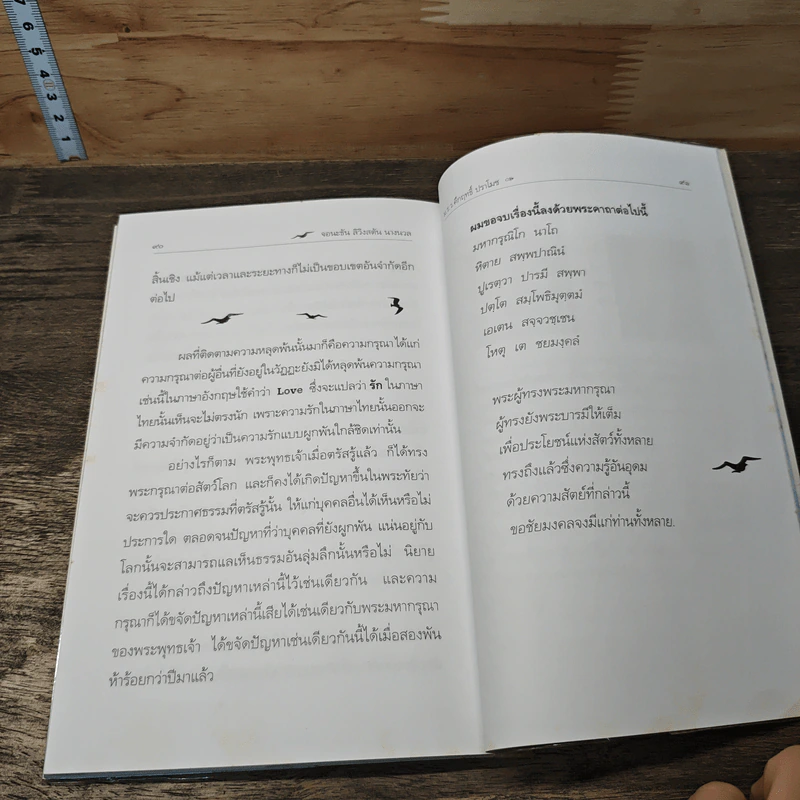 7
6
5
4
3
2
1
จอนะธัน ลิวิงสตัน นางนวล
สิ้นเชิง แม้แต่เวลาและระยะทางก็ไม่เป็นขอบเขตอันจำกัดอีก
ต่อไป
ผลที่ติดตามความหลุดพ้นนั้นมาก็คือความกรุณาได้แก่
ความกรุณาต่อผู้อื่นที่ยังอยู่ในวัฏฏะยังมิได้หลุดพ้นความกรุณา
เช่นนี้ในภาษาอังกฤษใช้คำว่า Love ซึ่งจะแปลว่า รัก ในภาษา
ไทยนั้นเห็นจะไม่ตรงนัก เพราะความรักในภาษาไทยนั้นออกจะ
มีความจำกัดอยู่ว่าเป็นความรักแบบผูกพันใกล้ชิดเท่านั้น
อย่างไรก็ตาม พระพุทธเจ้าเมื่อตรัสรู้แล้ว ก็ได้ทรง
พระกรุณาต่อสัตว์โลก และก็คงได้เกิดปัญหาขึ้นในพระทัยว่า
จะควรประกาศธรรมที่ตรัสรู้นั้น ให้แก่บุคคลอื่นได้เห็นหรือไม่
ประการใด ตลอดจนปัญหาที่ว่าบุคคลที่ยังผูกพัน แน่นอยู่กับ
โลกนั้นจะสามารถแลเห็นธรรมอันลุ่มลึกนั้นหรือไม่ นิยาย
เรื่องนี้ได้กล่าวถึงปัญหาเหล่านี้ไว้เช่นเดียวกัน และความ
กรุณาก็ได้ขจัดปัญหาเหล่านี้เสียได้เช่นเดียวกับพระมหากรุณา
ของพระพุทธเจ้า ได้ขจัดปัญหาเช่นเดียวกันนี้ได้เมื่อสองพัน
ห้าร้อยกว่าปีมาแล้ว
ม.ร.ว.คึกฤทธิ์ ปราโมช
ผมขอจบเรื่องนี้ลงด้วยพระคาถาต่อไปนี้
มหาการุณิโก นาโถ
หิตาย สพฺพปาณินํ
ปูเรตฺวา ปารมี สพฺพา
ปตฺโต สมฺโพธิมุตฺตมํ
เอเตน สจฺจวชฺเชน
โหตุ เต ชยมงฺคลํ
พระผู้ทรงพระมหากรุณา
ผู้ทรงยังพระบารมีให้เต็ม
เพื่อประโยชน์แห่งสัตว์ทั้งหลาย
ทรงถึงแล้วซึ่งความรู้อันอุดม
ด้วยความสัตย์ที่กล่าวนี้
ขอชัยมงคลจงมีแก่ท่านทั้งหลาย.